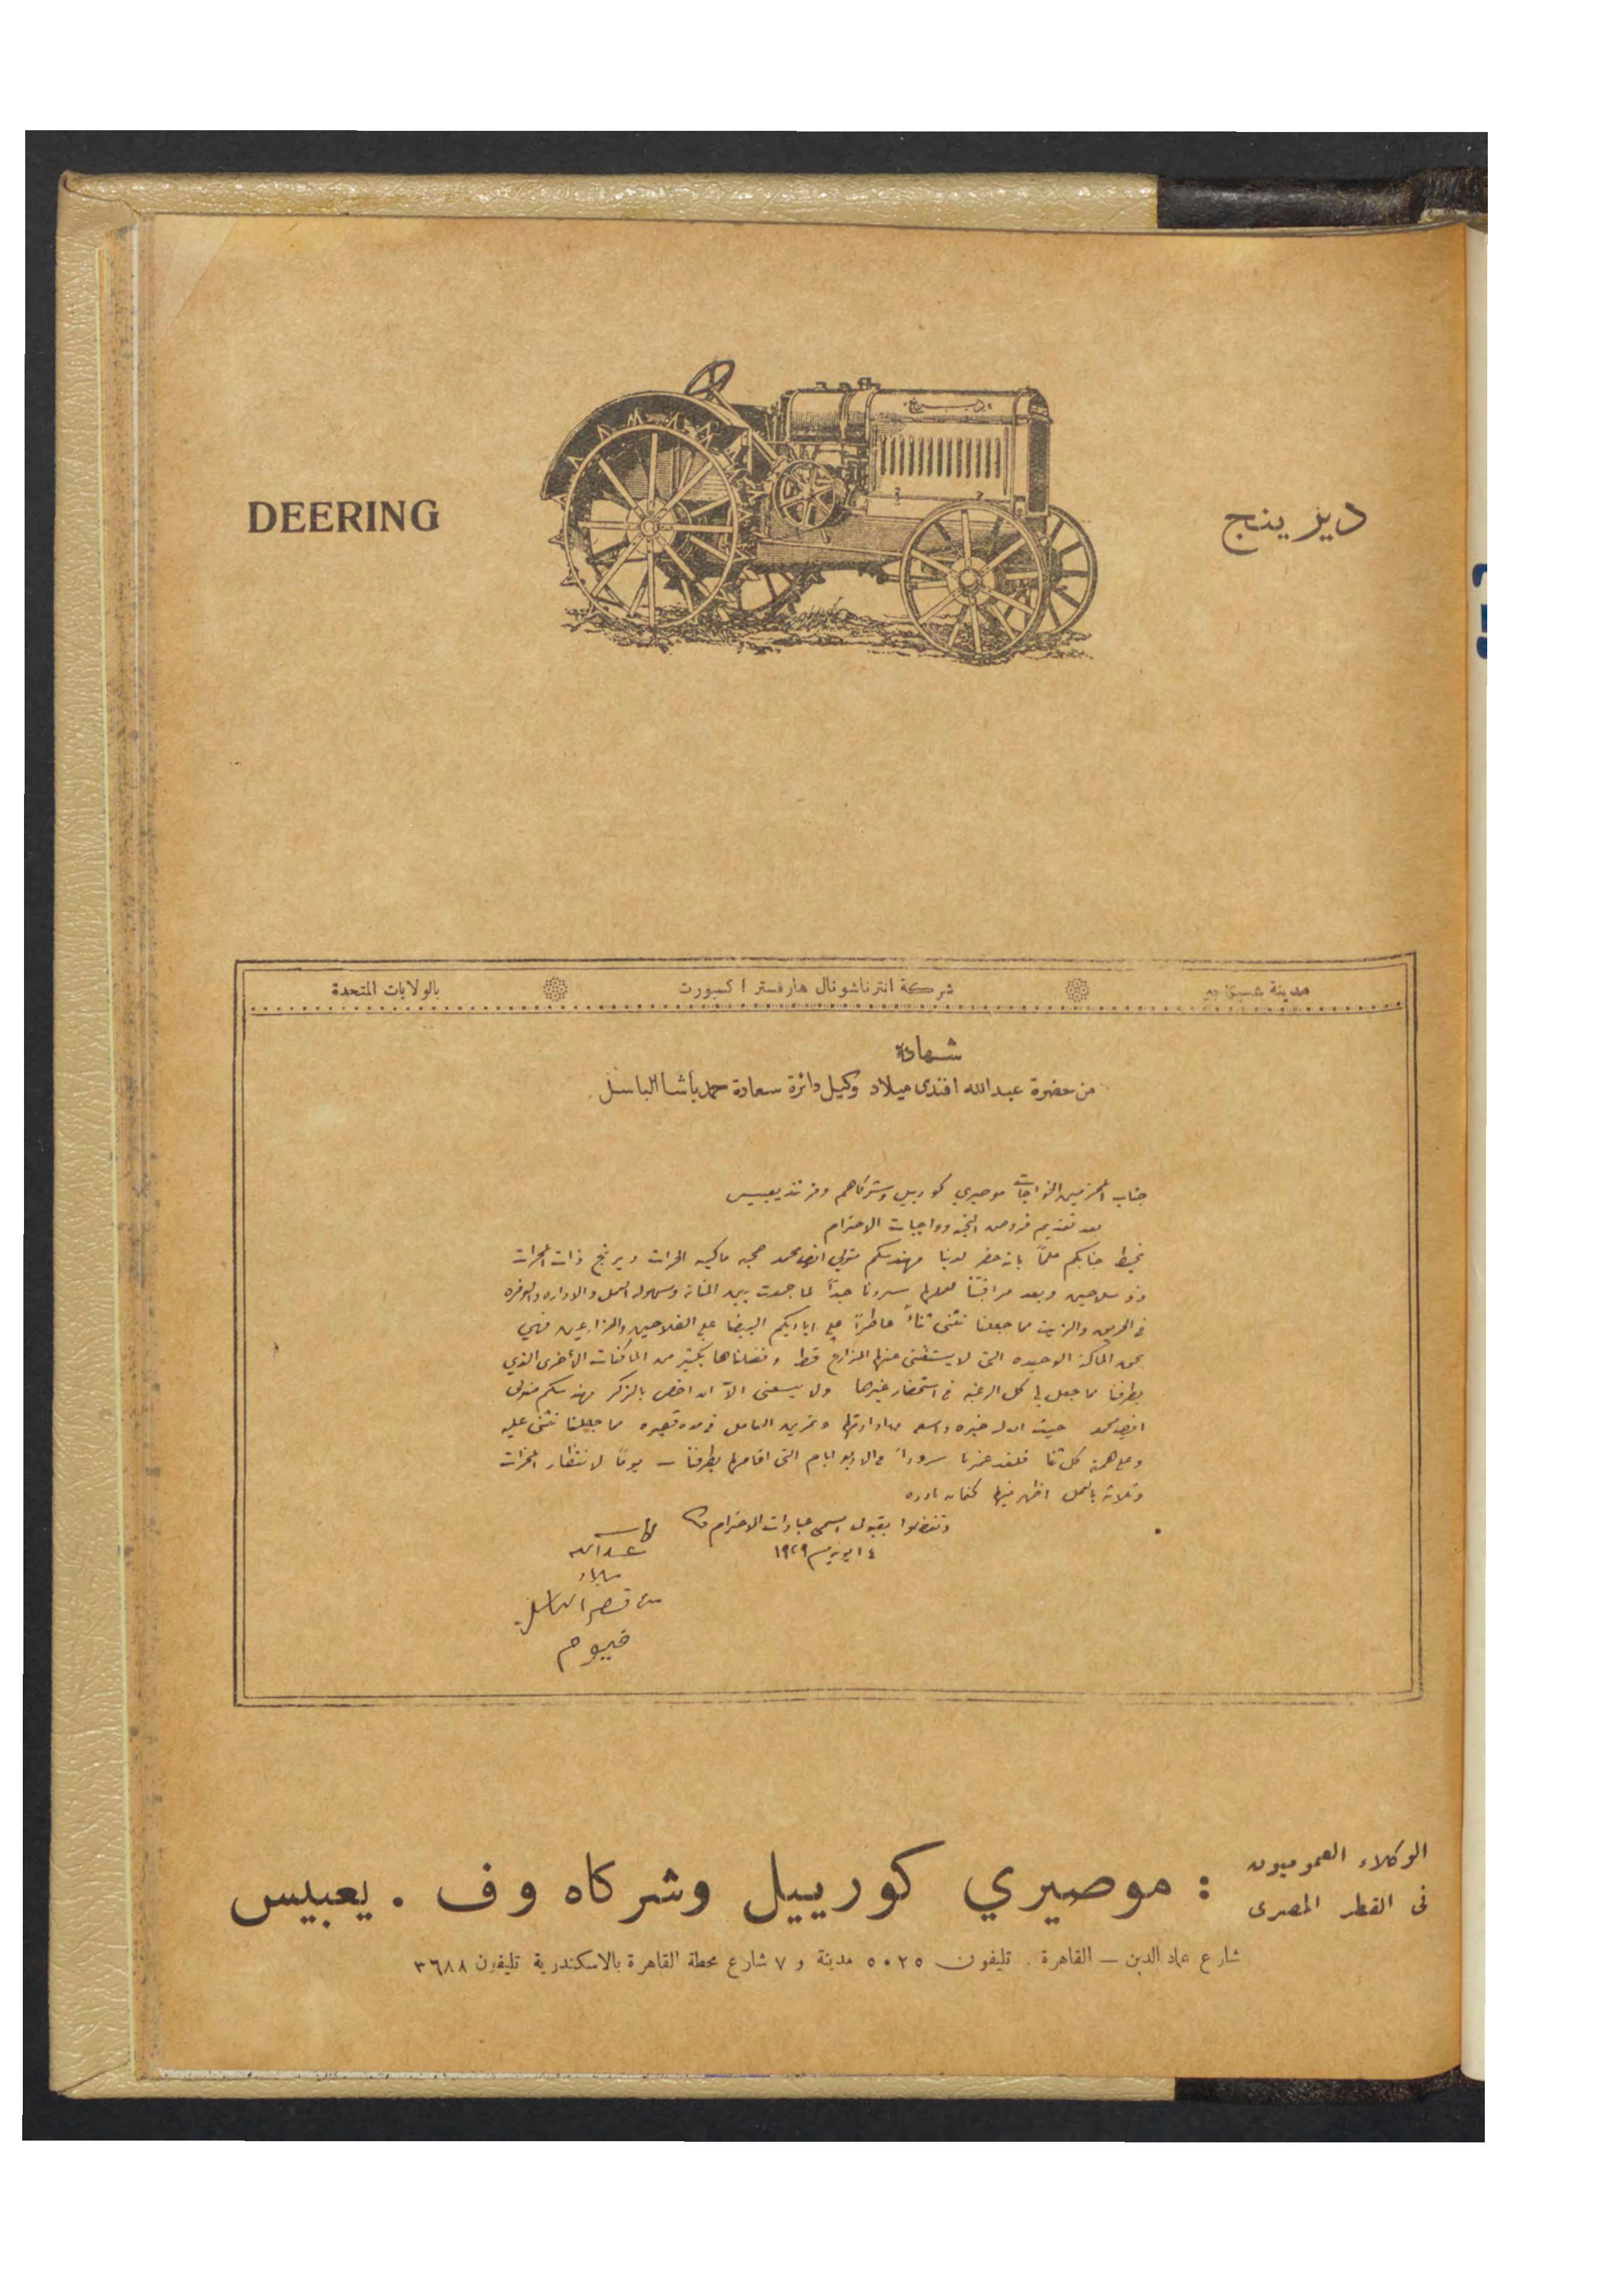 DEERING
ديرينج
مدينة شيكاجو
شركة انترناشونال هارفستر اكسبورت
بالولايات المتحدة
شهادة
من حضرة عبدالله افندى ميلاد وكيل دائرة سعادة حمد باشا الباسل
جناب المحترمين الخواجات موصيري كورييل وشركاهم وفرنند يعبيس
بعد تقديم فروض التحية وواجبات الاحترام
نحيط جنابكم علماً بانه حضر لدينا مهندسكم متولي افندى محمد صحبه ماكينه الحراث ديرنج ذات المحراث
ذو سلاحين وبعد مراقبتنا لعملها سررنا جداً لما جمعت بين المتانه وسهوله العمل والاداره والوفره
فى الحريق والزيت مما جعلنا نثنى ثناءً عاطراً على اياديكم البيضا على الفلاحين والمزارعين فهي
بحق الماكنة الوحيده التى لا يستغنى عنها المزارع قط وفضلناها بكثير من الماكنات الأخرى الذي
بطرفنا مما جعل لي كل الرغبه فى استحضار غيرها ولا يسعنى الاّ ان اخص بالذكر مهندسكم متولى
افندى محمد حيث ان له خبره واسعه بادارتها وتمرين العامل فى مده قصيره مما جعلنا نثنى عليه
وعلى همته كل ثنا فلقد غمرنا سروراً فى الاربع ايام التى اقامها بطرفنا يوماً لانتظار المحراث
وثلاثه بالعمل اظهر فيها كفاءه نادره
وتفضلوا بقبول اسمى عبارات الاحترام
١٤ يونيو سنه ١٩٢٩
كاتبه
عبد الله
ميلاد
من قصر الباسل
فيوم
الوكلاء العموميون
فى القطر المصرى
: موصيري كورييل وشركاه و ف . يعبيس
شارع عماد الدين — القاهرة . تليفون ٥٠٢٥ مدينة و ٧ شارع محطة القاهرة بالاسكندرية تليفون ٣٦٨٨